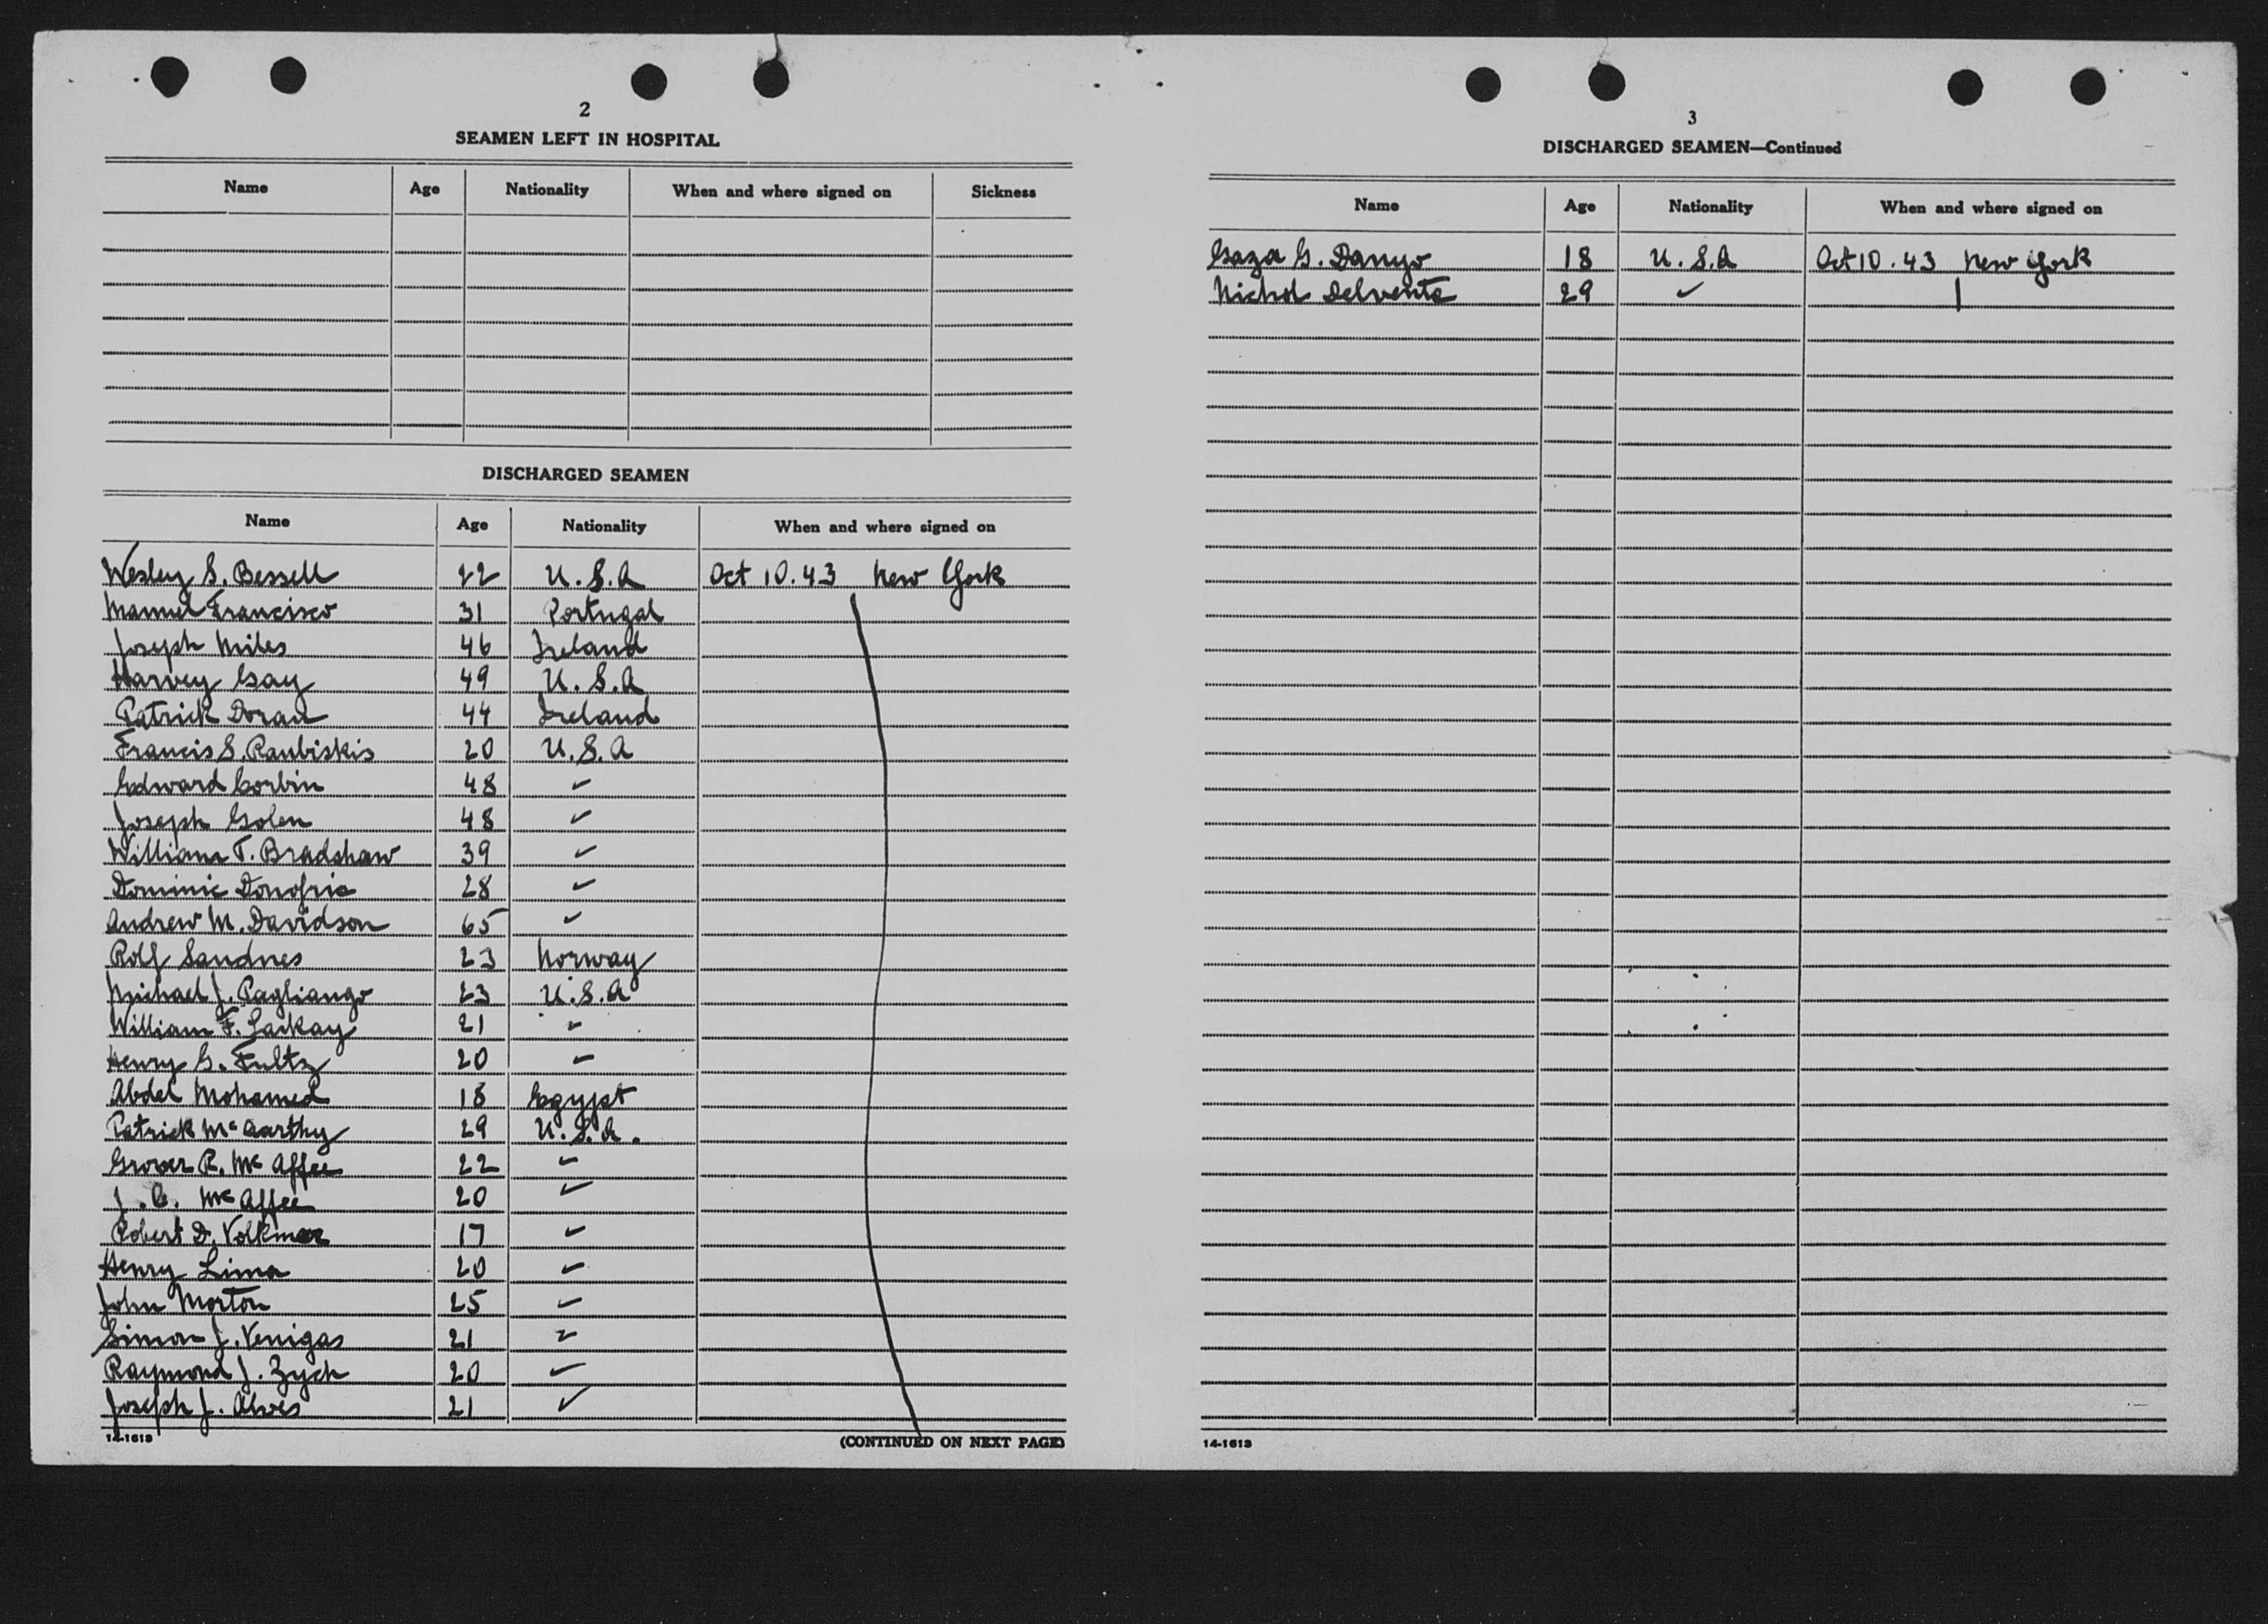 2
SEAMEN LEFT IN HOSPITAL
Name Age Nationality When and where signed on Sickness
DISCHARGED SEAMEN
Name Age Nationality When and where signed on
Wesley S. Bessell 22 U.S.A Oct 10.43 New York
Manuel Francisco 31 Portugal
Joseph Miles 46 Ireland
Harvey Gay 49 U.S.A
Patrick Doran 44 Ireland
Francis S. Raubiskis 20 U.S.A
Edward Corbin 48 ✓
Joseph Golen 48 ✓
William T. Bradshaw 39 ✓
Dominic Donofrio 28 ✓
Andrew M. Davidson 65 ✓
Rolf Sandnes 23 Norway
Michael J. Pagliango 23 U.S.A
William F. Lackay 21 ✓
Henry G. Fultz 20 ✓
Abdel Mohamed 18 Egypt
Patrick McCarthy 29 U.S.A.
Grover R. McAffee 22 ✓
J.C. McAffee 20 ✓
Robert D. Volkmer 17 ✓
Henry Lima 20 ✓
John Morton 25 ✓
Simon J. Venigas 21 ✓
Raymond J. Zych 20 ✓
Joseph J. Alves 21 ✓
14-1613 (CONTINUED ON NEXT PAGE)
3
DISCHARGED SEAMEN—Continued
Name Age Nationality When and where signed on
Gaza G. Danyo 18 U.S.A Oct 10.43 New York
Nichol Delvente 29 ✓
14-1613